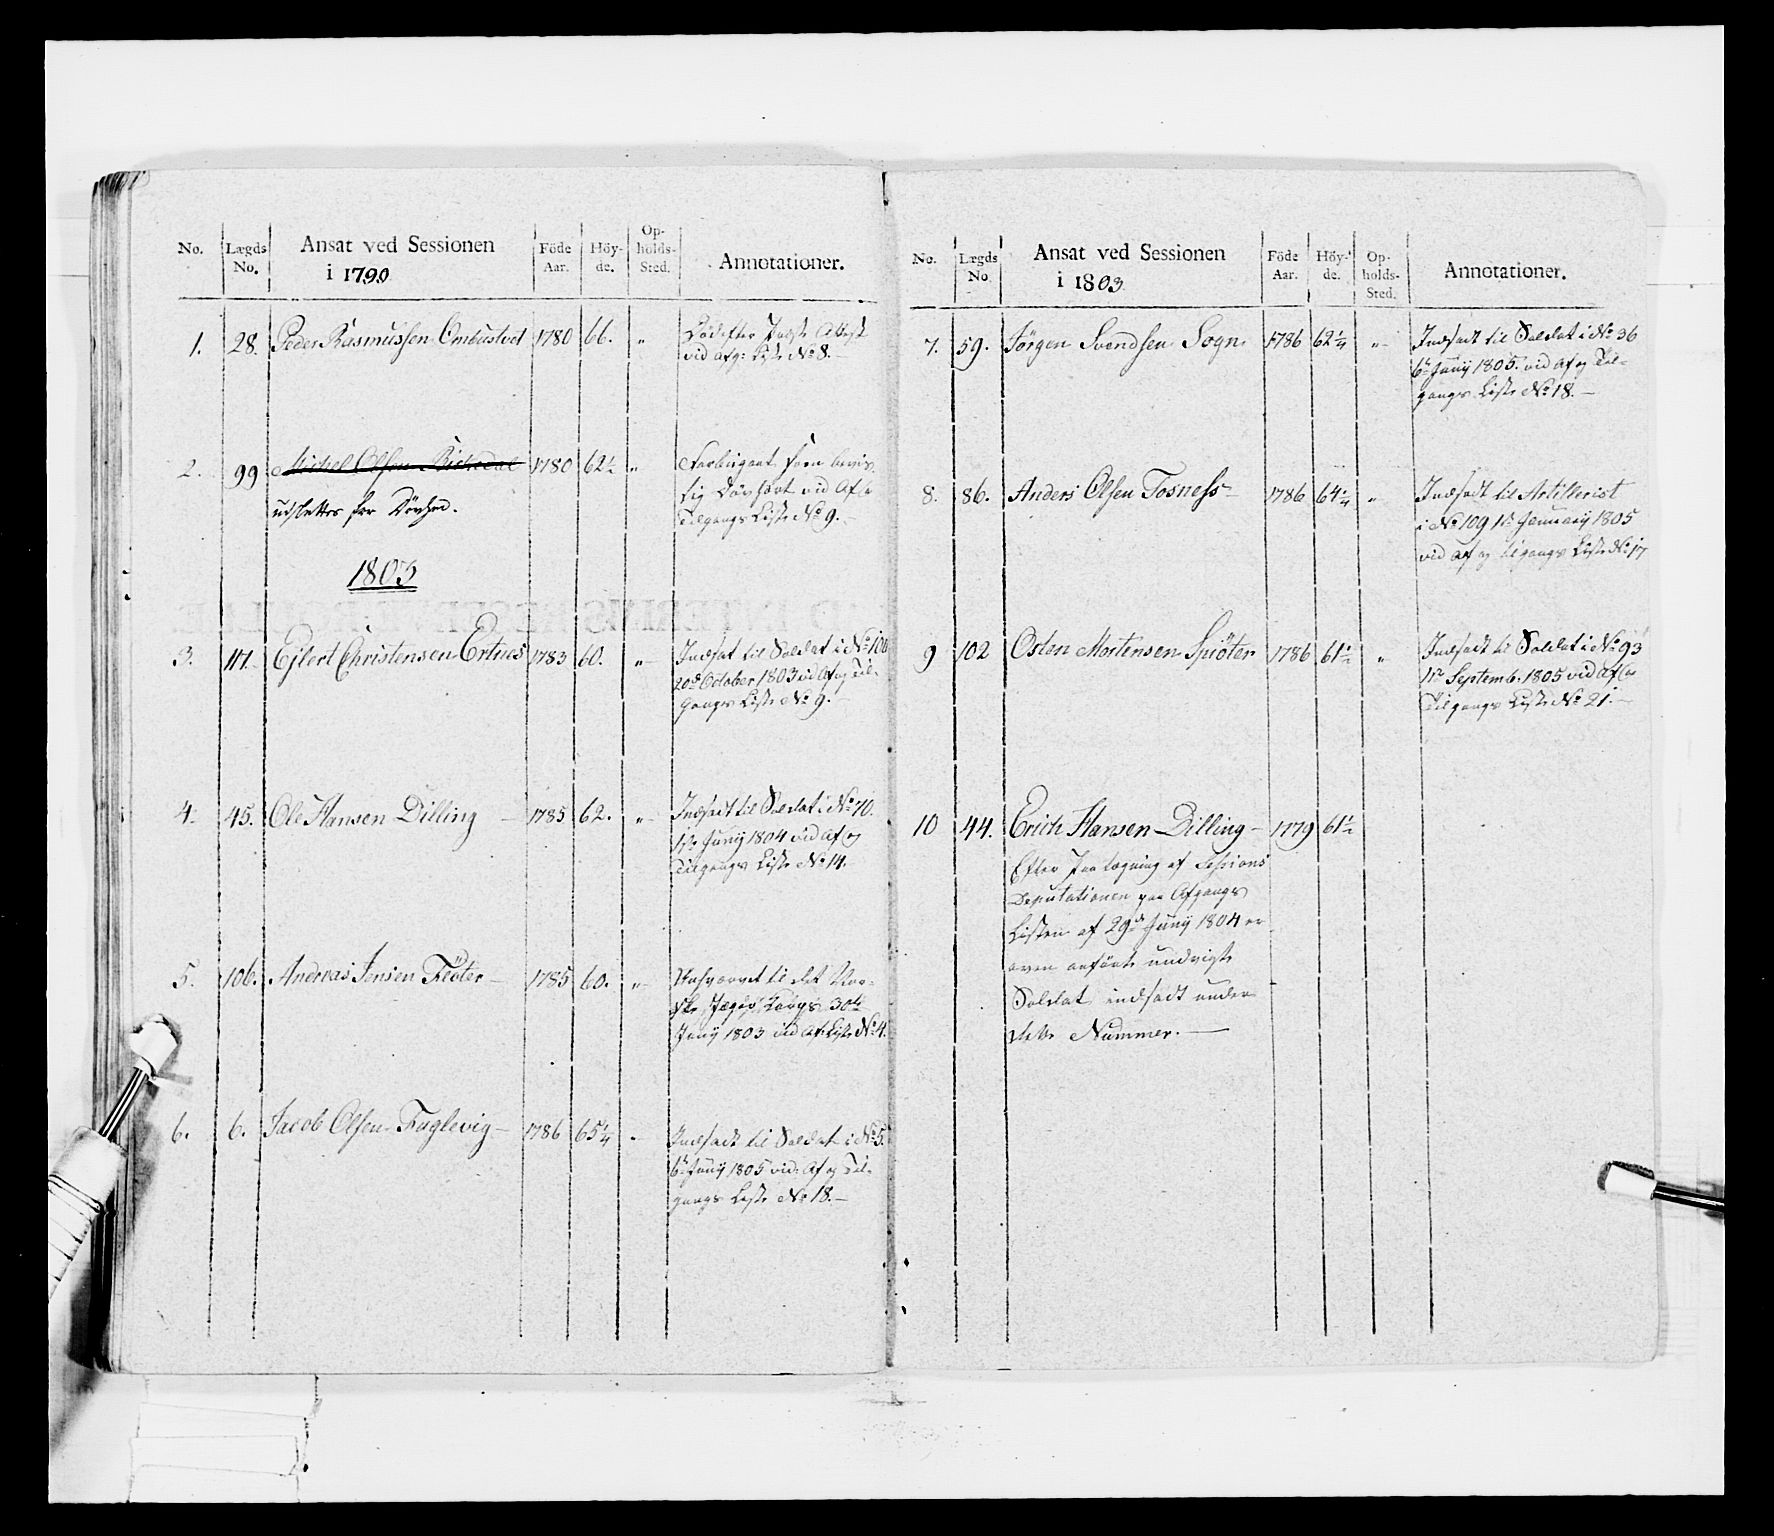 No. Lægds No. Ansat ved Sessionen i 1790 Föde Aar. Höyde. Opholds-Sted. Annotationer.
1. 28. Peder Rasmussen Ombustved 1780 66. "
Död efter Præste Attest
vid Afg: Liste No 8.
2. 99 Michel Olsen 1780 62½ "
udslettes for Dövhed.
tig Dövhört vid Af &
Tilgangs Liste No 9.
1803
3. 117. Ejlert Christensen Ertnes 1783 60. "
Indsat til Soldat i No 100
20de October 1803 vid Af og Til-
Gangs Liste No 9.
4. 45. Ole Hansen Dilling 1785 62. "
Indsadt til Soldat i No 70.
1ste Junij 1804 vid Af og
Tilgangs Liste No 14.
5. 106. Andreas Jensen Flöter 1785 60. "
til det Nor-
ske Jæger Corps 30te
Junij 1803 vid Af: Liste No 4.
6. 6. Jacob Olsen Fuglevig 1786 65¼ "
Indsadt til Soldat i No 5.
6te Junij 1805 vid Af og Til-
gangs Liste No 18.
No. Lægds No Ansat ved Sessionen i 1803 Föde Aar. Höy-de. Op-holds-Sted. Annotationer.
7. 59. Jörgen Svendsen Sogn 1786 62¼ "
Indsadt til Soldat i No 36
6te Junij 1805. vid Af og Til-
gangs Liste No 18.
8. 86. Anders Olsen Tosness 1786 64¼ "
Indsadt til Artillerist
i No 109 1te Januarij 1805
vid Af og tilgangs Liste No 17
9 102 Osten Mortensen Spröter 1786 61½ "
Indsadt til Soldat i No 93
1te Septemb. 1805 vid Af &
Tilgangs Liste No 21.
10 44. Erich Hansen Dilling 1779 61½
Efter Paategning af Sessions
Deputationen paa Afgangs
Listen af 29de Junij 1804 er
oven anförte
Soldat indsadt under
dette Nummer.